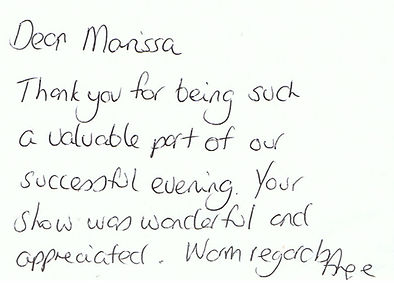 Dear Marissa
Thank you for being such
a valuable part of our
successful evening. Your
show was wonderful and
appreciated. Warm regards